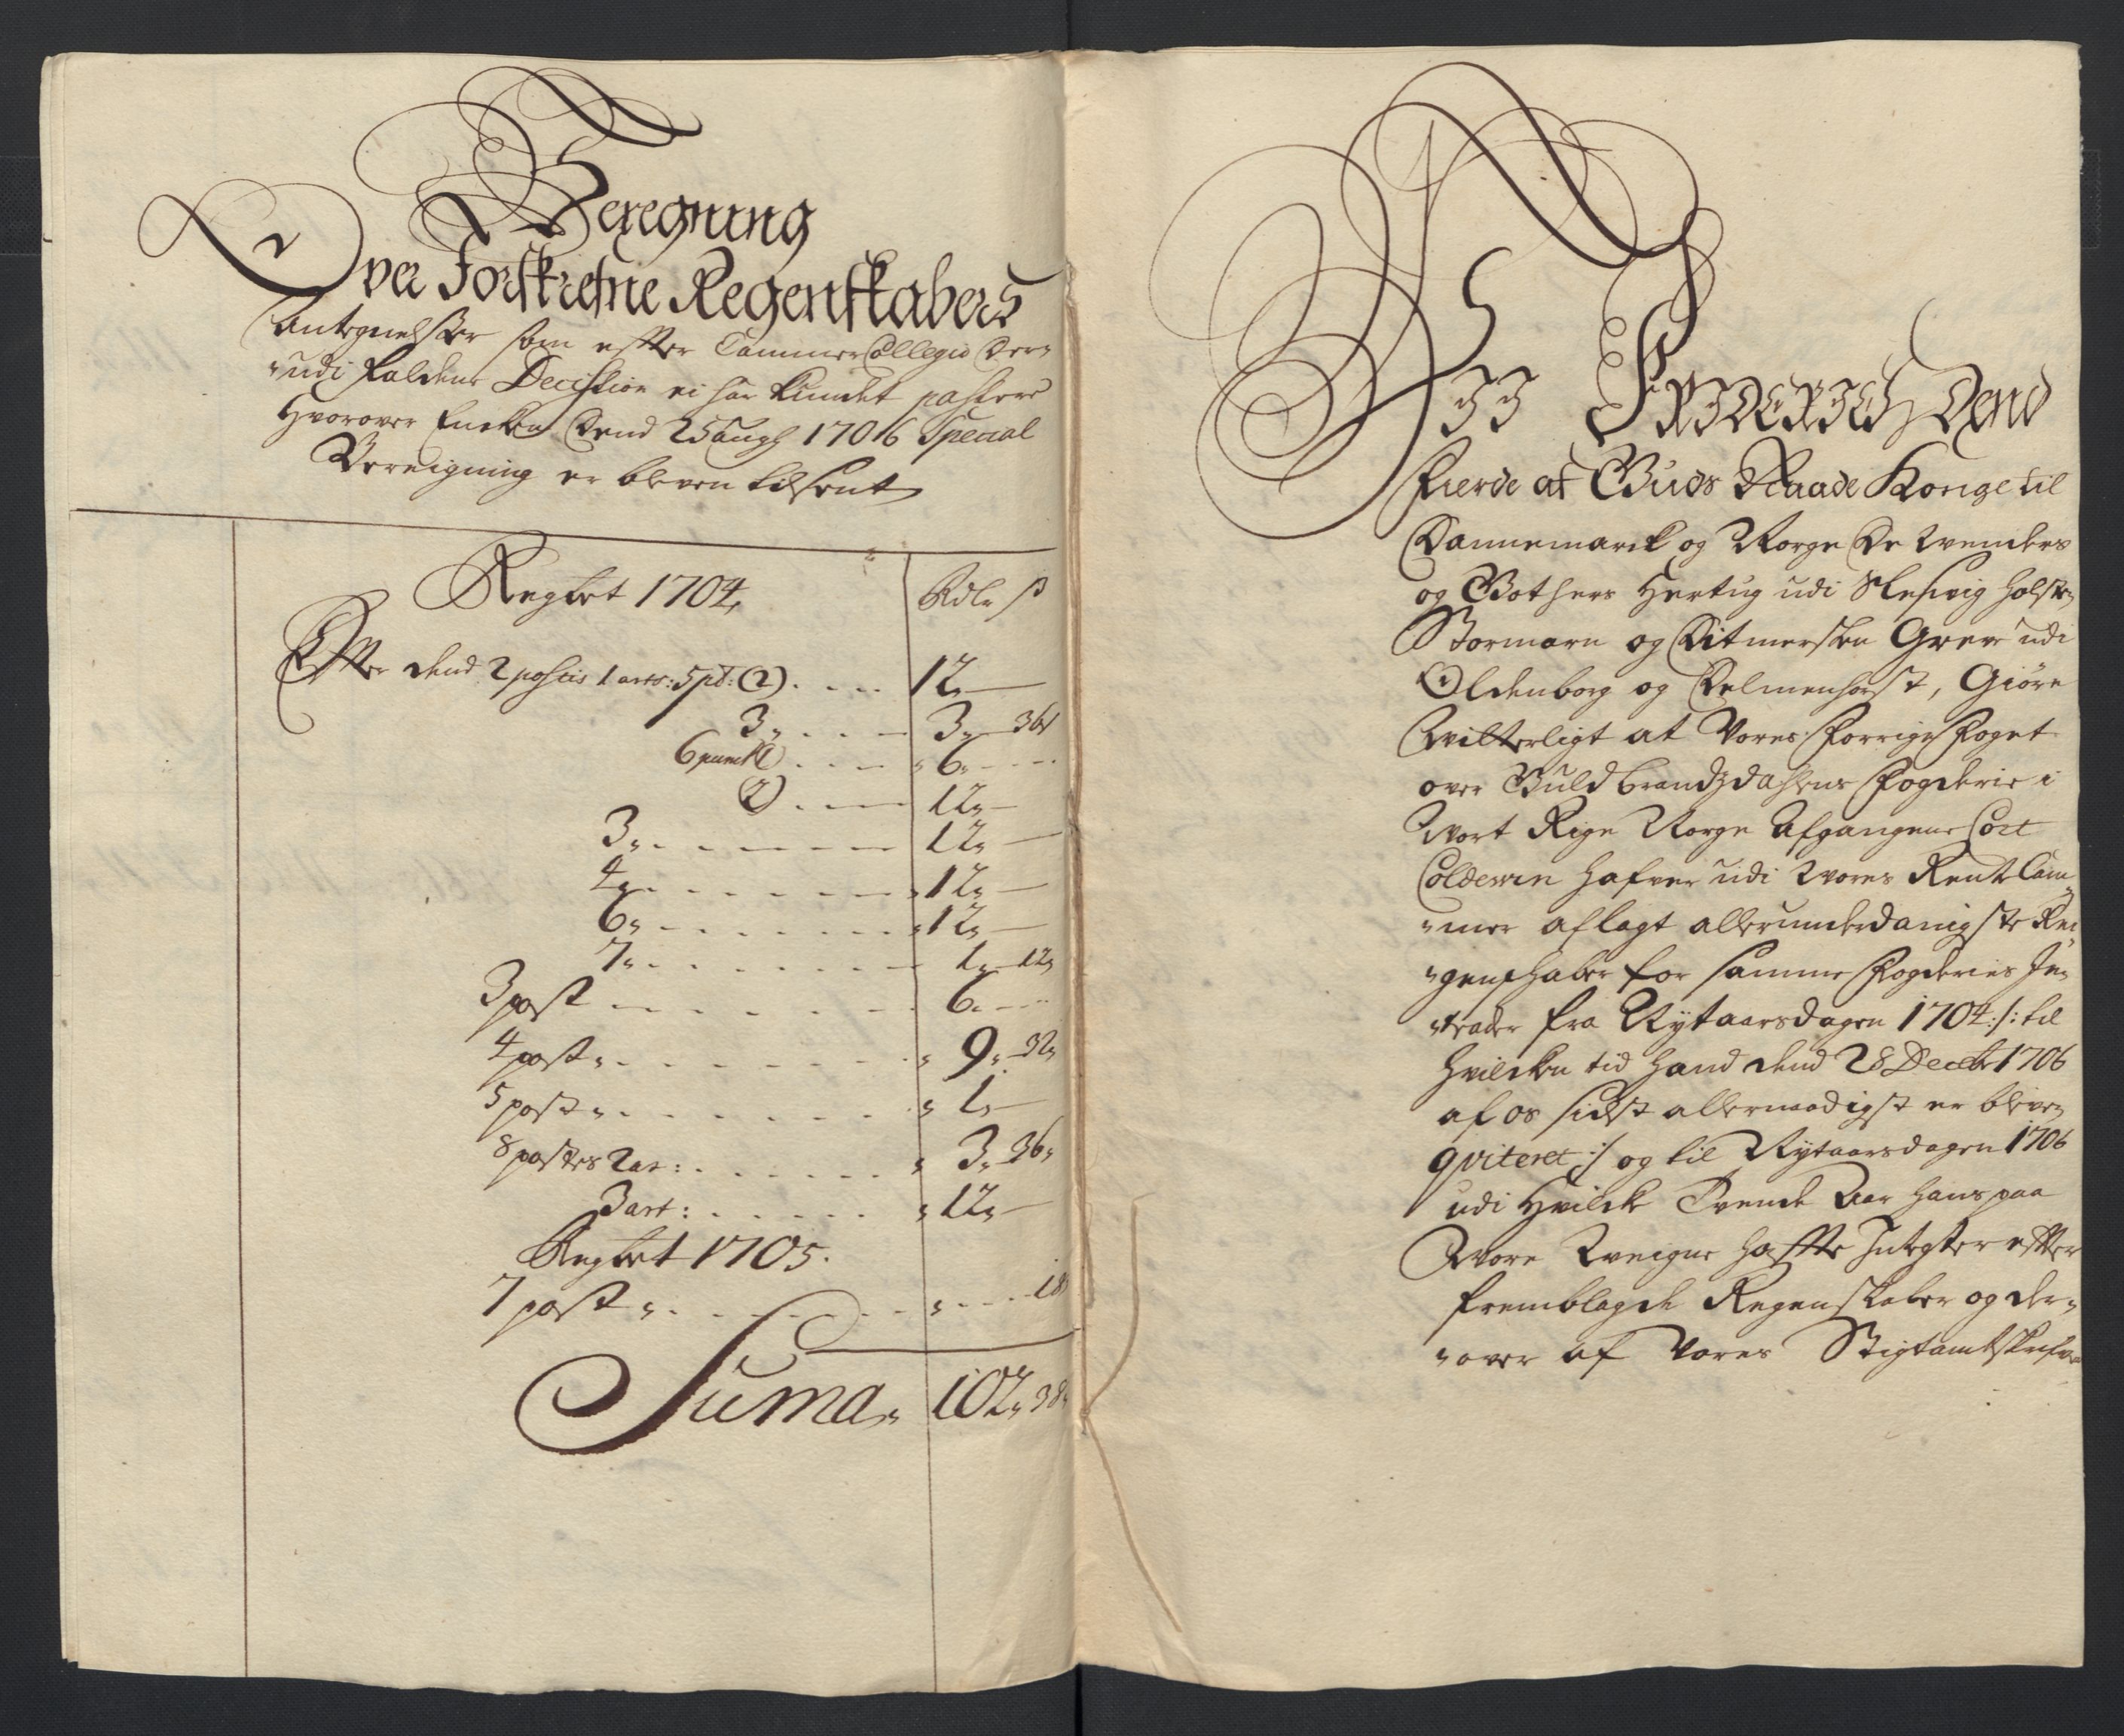 Beregning
Over Forskrefne Regenskabers
Antegnelser som effter Cammer Collegio der„
„udi faldene Decission ei har kundet passere
Hvorover Encken dend 25 Augs 1706 Special
Bereigning er bleven tilsent
Regbet 1704,
Rdlr ß
Effter dend 2 postis 1 arts: 5 pt: (2) .... 12„
3„ .... 3„ 36
6 punct (1) .... „ 6„
(2) .... 12„
3„ .... 12„
4„ .... „ 12„
6„ .... „ 12„
7„ .... 1„ 12„
3 post .... 6„
4 post „ .... „ 9„ 32„
5 post „ .... „ 1„
8 postes 2 ar: .... „ 3„ 36„
3 art: .... „ 12„
Regbet 1705.
7 post „ .... „ 18
Suma„ 102„ 38„
Wii Friderich Dend
Fierde af Guds Naade Konge til
Dannemarck og Norge De Wenders
og Gothers Hertug udi Slesvig Holsten
Stormarn og Ditmersken Greve udi
Oldenborg og Delmenhorst, Giöre
Witterligt at Vores forrige Foget
over Guldbrandzdahlens Fogderie i
Wort Rige Norge Afgangene Cort
Coldewin hafver udi Wores Rente Cam„
„mer aflagt allerunderdanigste Re„
„genskaber for samme Fogderies In„
„trader fra Nytaarsdagen 1704 :/: til
hvilcken tid hand dend 28 Decebr 1706
af os sidst allernaadigst er bleven
qviteret :/: og til Nytaarsdagen 1706
udi Hvilcke Tvende Aar hans paa
Wore Weigne hafte Integter effter
fremblagde Regenskaber og der„
„over af Vores Stigtamtskrifver